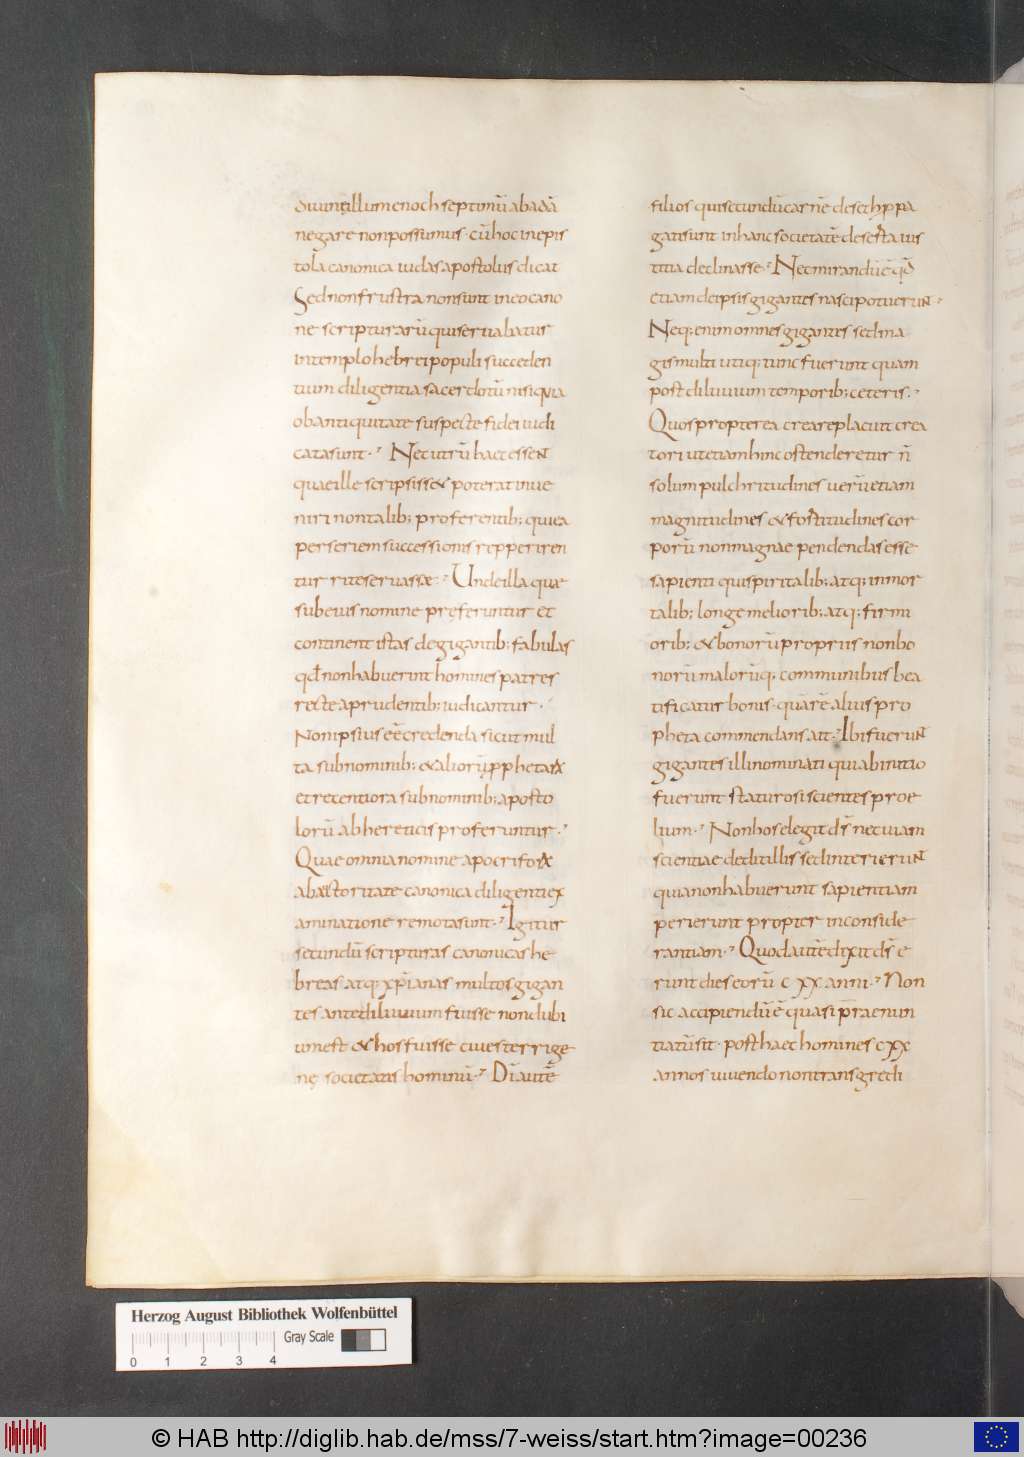 diuina illum enoch septimū ab adā
negare non possumus · cū hoc in epis
tola canonica iudas apostolus dicat
Sed non frustra non sunt in eo cano
ne scripturarū qui seruabatur
in templo hebrei populi succeden
tium diligentia sacerdotū nisi quia
ob antiquitate suspecte fidei iudi
cata sunt · Nec utrū haec essent
quae ille scripsisset poterat inue
niri non talib; proferentib; qui ea
per seriem successionis repperiren
tur rite seruasse · Unde illa quae
sub eius nomine preferuntur et
continent istas de gigantib; fabulas
qđ non habuerint homines patres
recte a prudentib; iudicantur ·
Non ipsius eē credenda sicut mul
ta sub nominib; & aliorū pphetarū
et recentiora sub nominib; aposto
lorū ab hereticis proferuntur ·
Quae omnia nomine apocriforū
ab auctoritate canonica diligenti ex
aminatione remota sunt · Igitur
secundū scripturas canonicas he
breas atq; xp̄ianas multos gigan
tes ante diluuium fuisse non dubi
um est & hos fuisse ciues terrige
nę societatis hominū · Dī autē
filios qui secundū carnē de seth ppa
gati sunt in hanc societatē deserta ius
titia declinasse · Nec mirandū ē qđ
etiam de ipsis gigantes nasci potuerunt ·
Neq; enim omnes gigantes sed ma
gis multi utiq; tunc fuerunt quam
post diluuium temporib; ceteris ·
Quos propterea creare placuit crea
tori ut etiam hinc ostenderetur n̄
solum pulchritudines uerū etiam
magnitudines & fortitudines cor
porū non magnae pendendas esse
sapienti qui spiritalib; atq; inmor
talib; longe meliorib; atq; firmi
orib; & bonorū propriis non bo
norū malorūq; communibus bea
tificatur bonis · quā rē alius pro
pheta commendans ait · Ibi fuerunt
gigantes illi nominati qui ab initio
fuerunt staturosi scientes proe
lium · Non hos elegit dn̄s nec uiam
scientiae dedit illis sed interierunt
quia non habuerunt sapientiam
perierunt propter inconside
rantiam · Quod autē dixit dn̄s e
runt dies eorū cxx anni · Non
sic accipiendū ē quasi praenun
tiatū sit · post haec homines cxx
annos uiuendo non transgredi
Herzog August Bibliothek Wolfenbüttel
0 1 2 3 4 Gray Scale
© HAB http://diglib.hab.de/mss/7-weiss/start.htm?image=00236